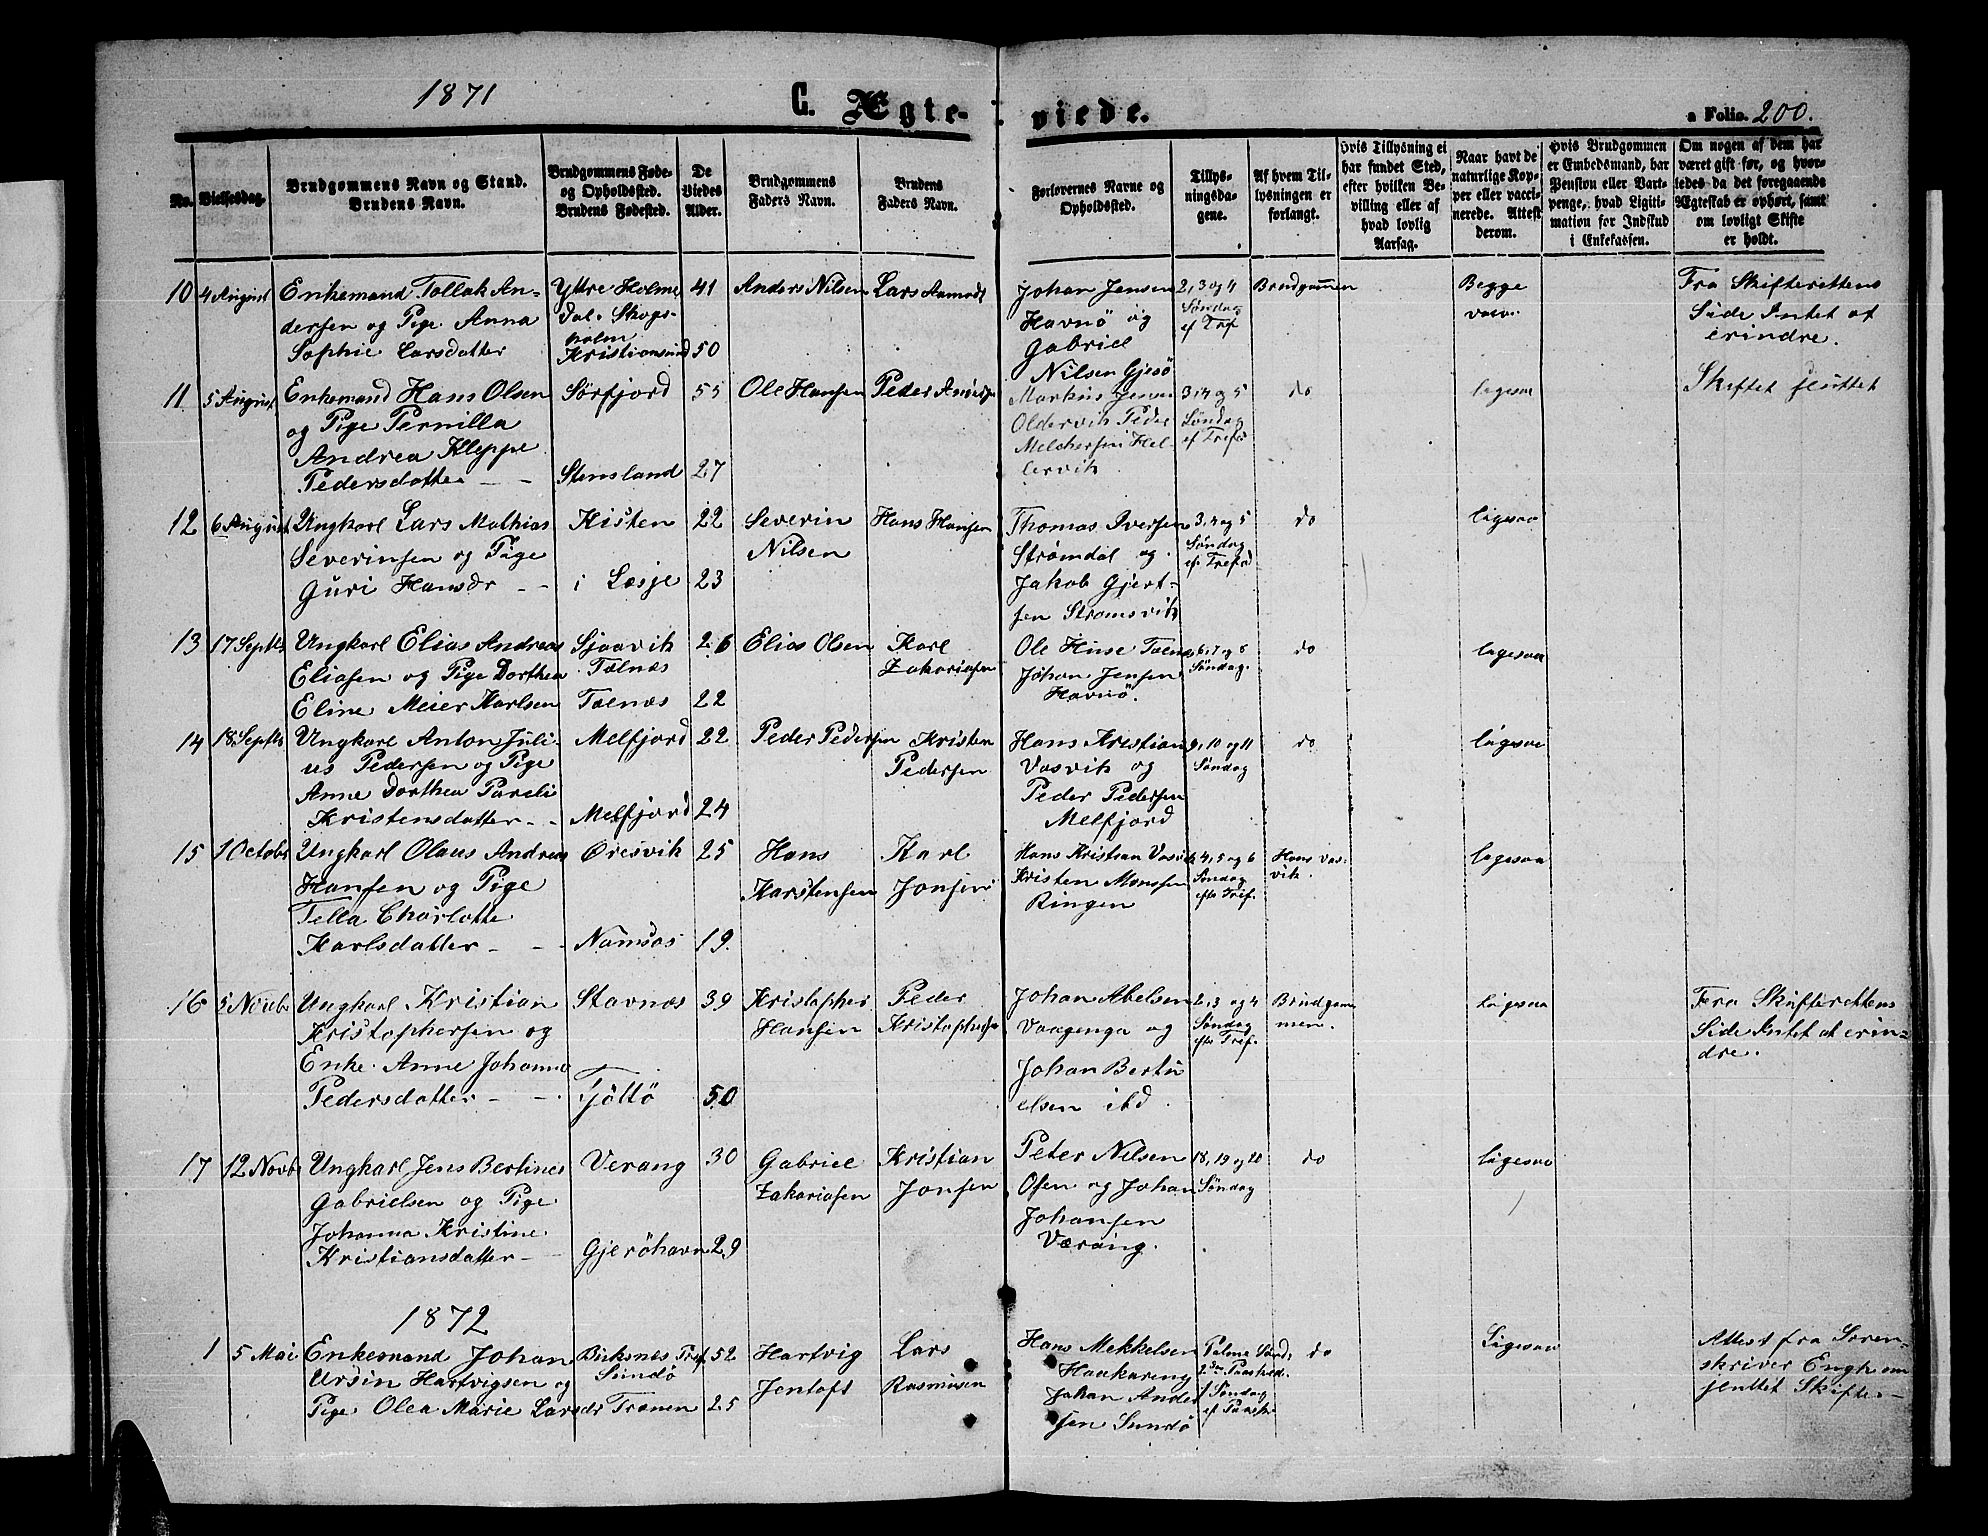 1871
C. Ægte-viede.
a Folio. 200.
No.
Vielsesdag.
Brudgommens Navn og Stand.
Brudens Navn.
Brudgommens Føde-
og Opholdssted.
Brudens Fødested.
De
Viedes
Alder.
Brudgommens
Faders Navn.
Brudens
Faders Navn.
Forlovernes Navne og
Opholdssted.
Tillys-
ningsda-
gene.
Af hvem Til-
lysningen er
forlangt.
Hvis Tillysning ei
har fundet Sted,
efter hvilken Be-
villing eller af
hvad lovlig
Aarsag.
Naar havt de
naturlige Kop-
per eller vacci-
nerede. Attest
derom.
Hvis Brudgommen
er Embedsmand, har
Pension eller Vart-
penge, hvad Ligiti-
mation for Indskud
i Enkekassen.
Om nogen af dem har
været gift før, og hvor-
ledes da det foregaaende
Ægteskab er ophørt, samt
om lovligt Skifte
er holdt.
10 4 August Enkemand Tollak An- Yttre Holme 41 Anders Nilsen Lars Aamodt Johan Jensen 2, 3 og 4 Brudgommen Begge Fra Skifterettens
dersen og Pige Anna dal. Skogs- Havnö og Söndag vacc. Side Intet at
Sophie Larsdatter holm Kristiansund 50 Gabriel ef Tref erindre.
Nilsen Gjesö
11 5 August Enkemand Hans Olsen Sörfjord 55 Ole Hansen Peder Anders Markus Jensen 3, 4 og 5 do ligesaa Skiftet sluttet
og Pige Pernilla Oldervik Peder Söndag
Andrea Kleppe Melchersen Hel- ef Trefd
Pedersdatter - - Stensland 27 lervik
12 6 August Ungkarl Lars Mathias Kisten 22 Severin Hans Hansen Thomas Iversen 3, 4 og 5 do ligesaa
Severinsen og Pige Nilsen Strömdal og Söndag
Guri Hansdr - - i Lesje 23 Jakob Gjert- ef. Trefd
sen Strömsvik
13 17 Septbr Ungkarl Elias Andreas Sjaavik 26 Elias Olsen Karl Ole Huse Tælnæs 6, 7 og 8 do ligesaa
Eliasen og Pige Dorthea Tælnæs Zakariasen Johan Jensen Söndag.
Eline Meier Karlsen Tælnæs 22 Havnö.
14 18 Septbr Ungkarl Anton Juli- Melfjord 22 Peder Pedersen Kristen Hans Kristian 9, 10 og 11 do ligesaa
us Pedersen og Pige Pedersen Vasvik og Söndag
Anne Dorthea Pareli Peder Pedersen
Kristensdatter - - Melfjord 24 Melfjord
15 1 Octobr Ungkarl Olaus Andreas Öresvik 25 Hans Karl Hans Kristian Vasvik 4, 5 og 6 Hans Vas- ligesaa
Hansen og Pige Karstensen Jonsen Kristen Monsen Söndag vik.
Tella Charlotte Ringen efte Tref.
Karlsdatter - - Namsos 19.
16 5 Novbr Ungkarl Kristian Stavnæs 39 Kristopher Peder Johan Abelsen 2, 3 og 4 Brudgom- ligesaa Fra Skifterettens
Kristophersen og Hansen Kristophersen Vaagenga og Söndag men. Side Intet at erin-
Enke Anne Johanna efte Tref. dre.
Johan Bertu
Pedersdatter - - Tjöttö 50 elsen ibd
17 12 Novbr Ungkarl Jens Bertines Verang 30 Gabriel Kristian Peter Nilsen 18, 19 og 20 do ligesaa
Gabrielsen og Pige Zakariasen Jonsen Osen og Johan Söndag
Johanna Kristine Johansen
Kristiansdatter - - Gjeröhavn 29 Værang.
1872
1 5 Mai Enkemand Johan Birksnes Tref. 52 Hartvig Lars Hans Mekkelsen Palme Sönd. do Ligesaa Attest fra Soren-
Ursin Hartvigsen og Sundö Jentoft Rasmusen Haakareng 2den Paaskd. skriver Engh om
Pige Olea Marie Larsdr Tranen 25 Johan Ander 1 Söndag jenttet Skifte.-
sen Sundö ef Paaske